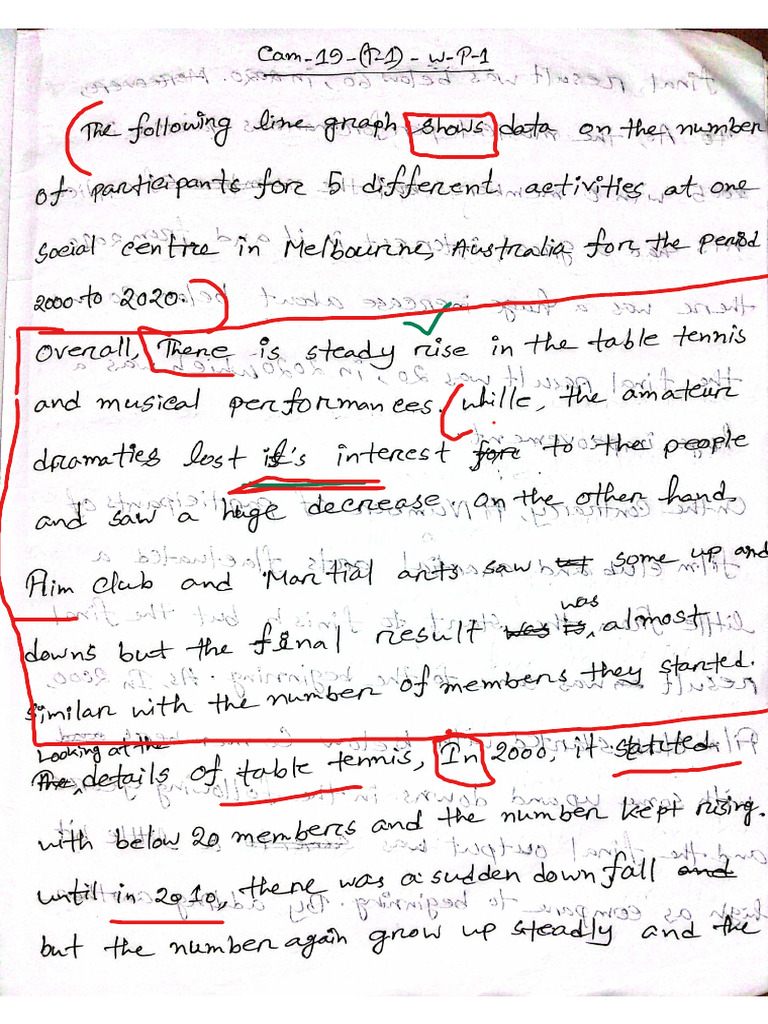 Cam-19-(T1)-W-P-1
The following line graph shows data on the number
of participants for 5 different activities at one
social centre in Melbourne, Australia for the period
2000 to 2020.
Overall, There is steady rise in the table tennis
and musical performances. while, the amateur
dramatics lost it's interest for to the people
and saw a huge decrease on the other hand
Flim club and Martial arts saw some up and
downs but the final result was is, was almost
similar with the number of members they started.
Looking at the
The, details of table tennis, In 2000, it started
with below 20 members and the number kept rising.
until in 2010, there was a sudden down fall and
but the number again grow up steadly and the